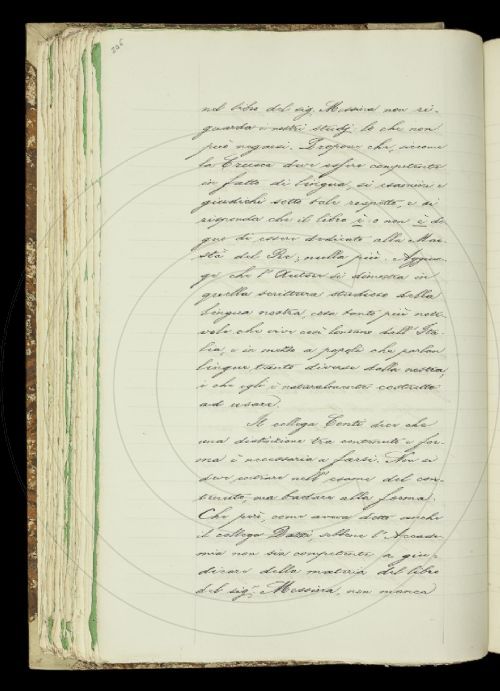 296
nel libro del sig. Messina non ri-
guarda i nostri studj: lo che non
può negarsi. Propone che, siccome
la Crusca dev'essere competente
in fatto di lingua, si esamini e
giudichi sotto tale rispetto, e si
risponda che il libro è o non è de
gno di essere dedicato alla Mae-
stà del Re; nulla più. Aggiun-
ge che l'Autore si dimostra in
quella scrittura studioso della
lingua nostra, cosa tanto più note-
vole che vive così lontano dall'Ita-
lia, e in mezzo a popoli che parlan
lingue tanto diverse dalla nostra,
e che egli è naturalmente costretto
ad usare.
Il collega Conti dice che
una distinzione tra contenuto e for-
ma è necessaria a farsi. Non si
deve entrare nell'esame del con-
tenuto, ma badare alla forma.
Che però, come aveva detto anche
il collega Dazzi, sebbene l'Accade-
mia non sia competente a giu-
dicare della materia del libro
del sig. Messina, non manca